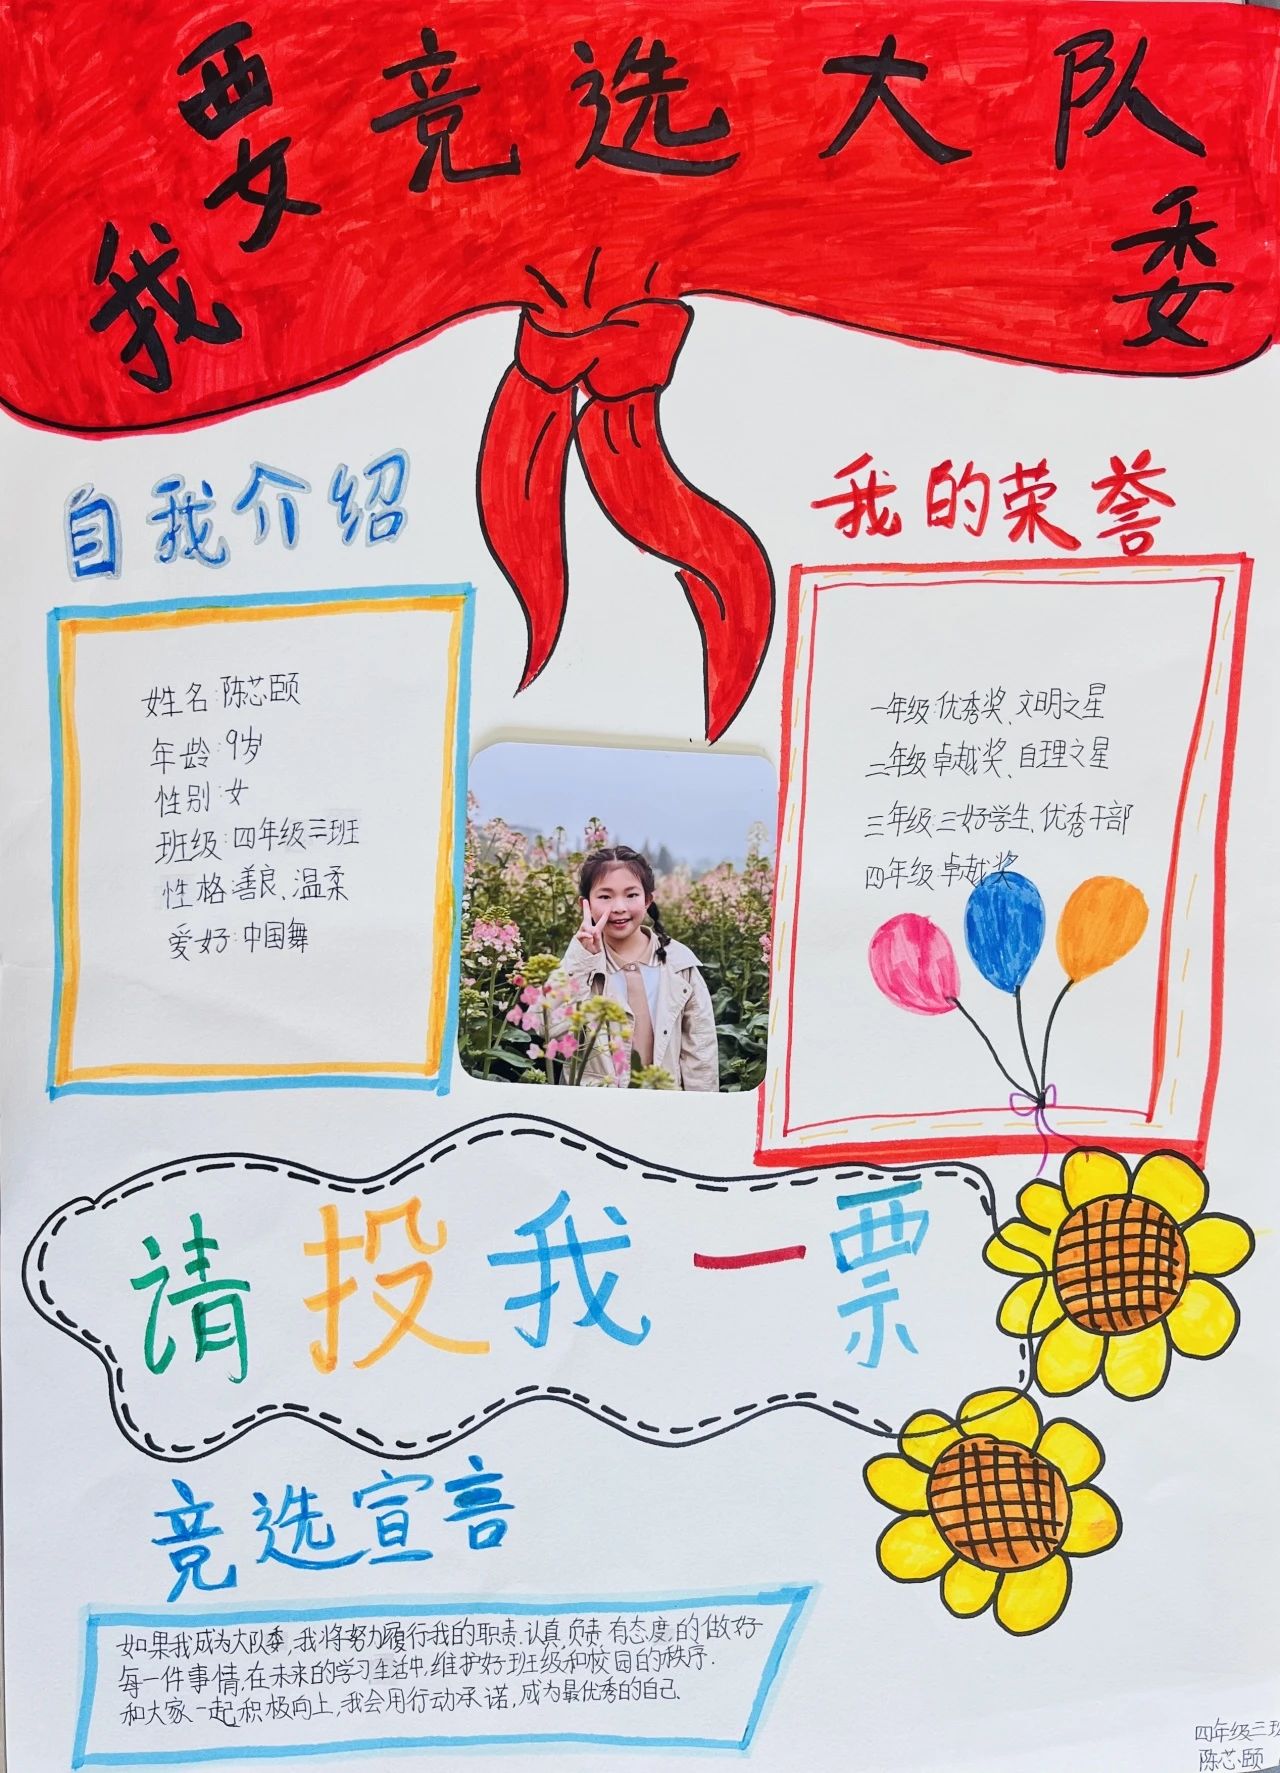 我要竞选大队委
自我介绍
姓名:陈芯颐
年龄:9岁
性别:女
班级:四年级三班
性格:善良、温柔
爱好:中国舞
我的荣誉
一年级:优秀奖、文明之星
二年级:卓越奖、自理之星
三年级:三好学生、优秀干部
四年级:卓越奖
请投我一票
竞选宣言
如果我成为大队委,我将努力履行我的职责.认真,负责,有态度,的做好
每一件事情,在未来的学习生活中,维护好班级和校园的秩序.
和大家一起积极向上,我会用行动承诺,成为最优秀的自己.
四年级三班
陈芯颐